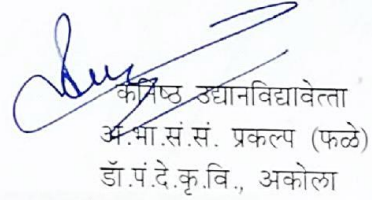 कनिष्ठ उद्यानविद्यावेत्ता
अ.भा.सं.सं. प्रकल्प (फळे)
डॉ.पं.दे.कृ.वि., अकोला